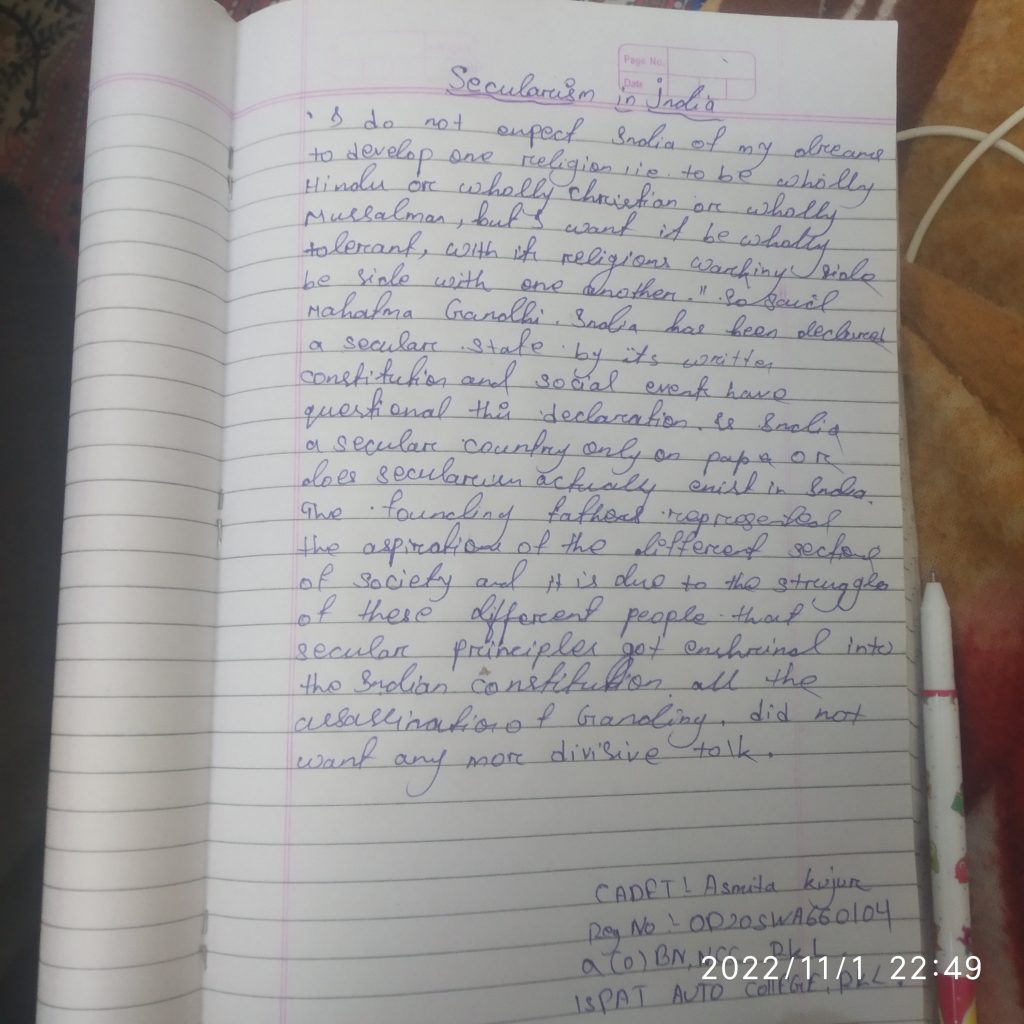 Page No.
Date
Secularism in India
"I do not expect India of my dreams
to develop one religion, i.e. to be wholly
Hindu or wholly Christian or wholly
Mussalman, but I want it be wholly
tolerant, with its religions working side
be side with one another." So said
Mahatma Gandhi. India has been declared
a secular state by its written
constitution and social event have
questional this declaration. Is India
a secular country only on papa or
does secularism actualy exist in India.
The founding fathers represented
the aspirations of the different sections
of society and it is due to the struggles
of these different people that
secular principles got enshrined into
the Indian constitution. all the
assassination of Gandhiji. did not
want any more divisive talk.
CADET: Asmita kujur
Reg No:- OD20SWA660104
(0) BN, NCC, RKL
ISPAT AUTO COllEGE, RKL.
2022/11/1 22:49